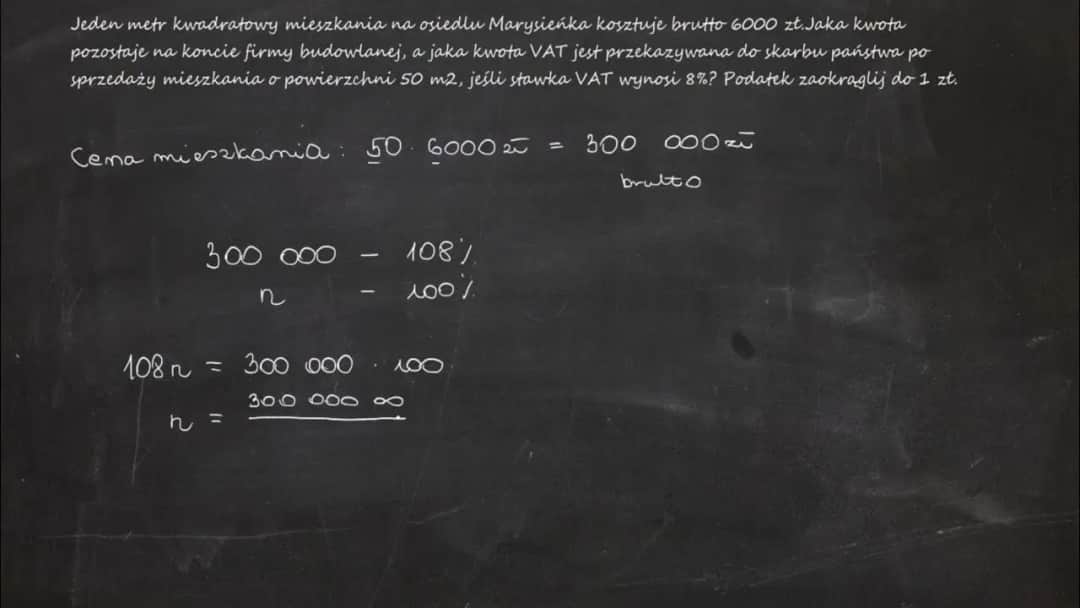 Jeden metr kwadratowy mieszkania na osiedlu Marysieńka kosztuje brutto 6000 zł.Jaka kwota
pozostaje na koncie firmy budowlanej, a jaka kwota VAT jest przekazywana do skarbu państwa po
sprzedaży mieszkania o powierzchni 50 m2, jeśli stawka VAT wynosi 8%? Podatek zaokrąglij do 1 zł.
Cena mieszkania : 50 · 6000 zł = 300 000 zł
brutto
300 000 – 108%
n – 100%
108n = 300 000 · 100
n = 300 000 00